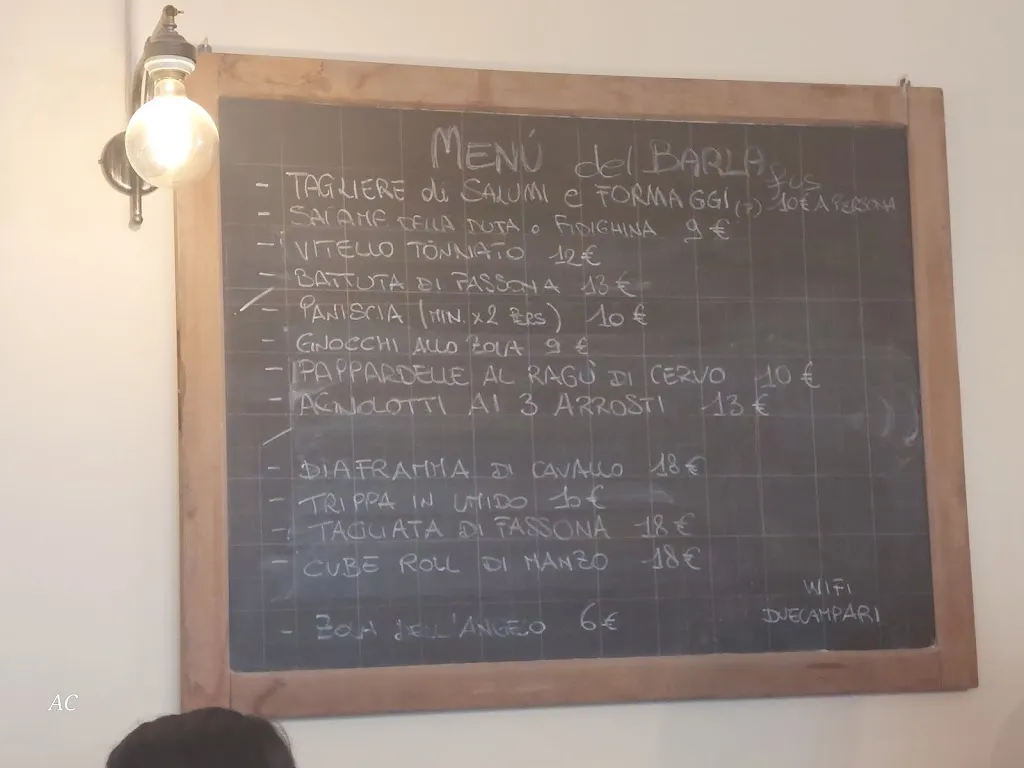 MENÚ del BARLA
- TAGLIERE di SALUMI e FORMAGGI 10€ A PERSONA
- SALAME DELLA DUJA o FIDIGHINA 9 €
- VITELLO TONNATO 12€
- BATTUTA DI FASSONA 13€
- PANISCIA (MIN. x2 PERS) 10 €
- GNOCCHI ALLO ZOLA 9 €
- PAPPARDELLE AL RAGÙ DI CERVO 10 €
- AGNOLOTTI AI 3 ARROSTI 13 €
- DIAFRAMMA DI CAVALLO 18€
- TRIPPA IN UMIDO 10€
- TAGLIATA DI FASSONA 18€
- CUBE ROLL DI MANZO 18€
- ZOLA DELL'ANGELO 6€
WIFI
DUECAMPARI
AC